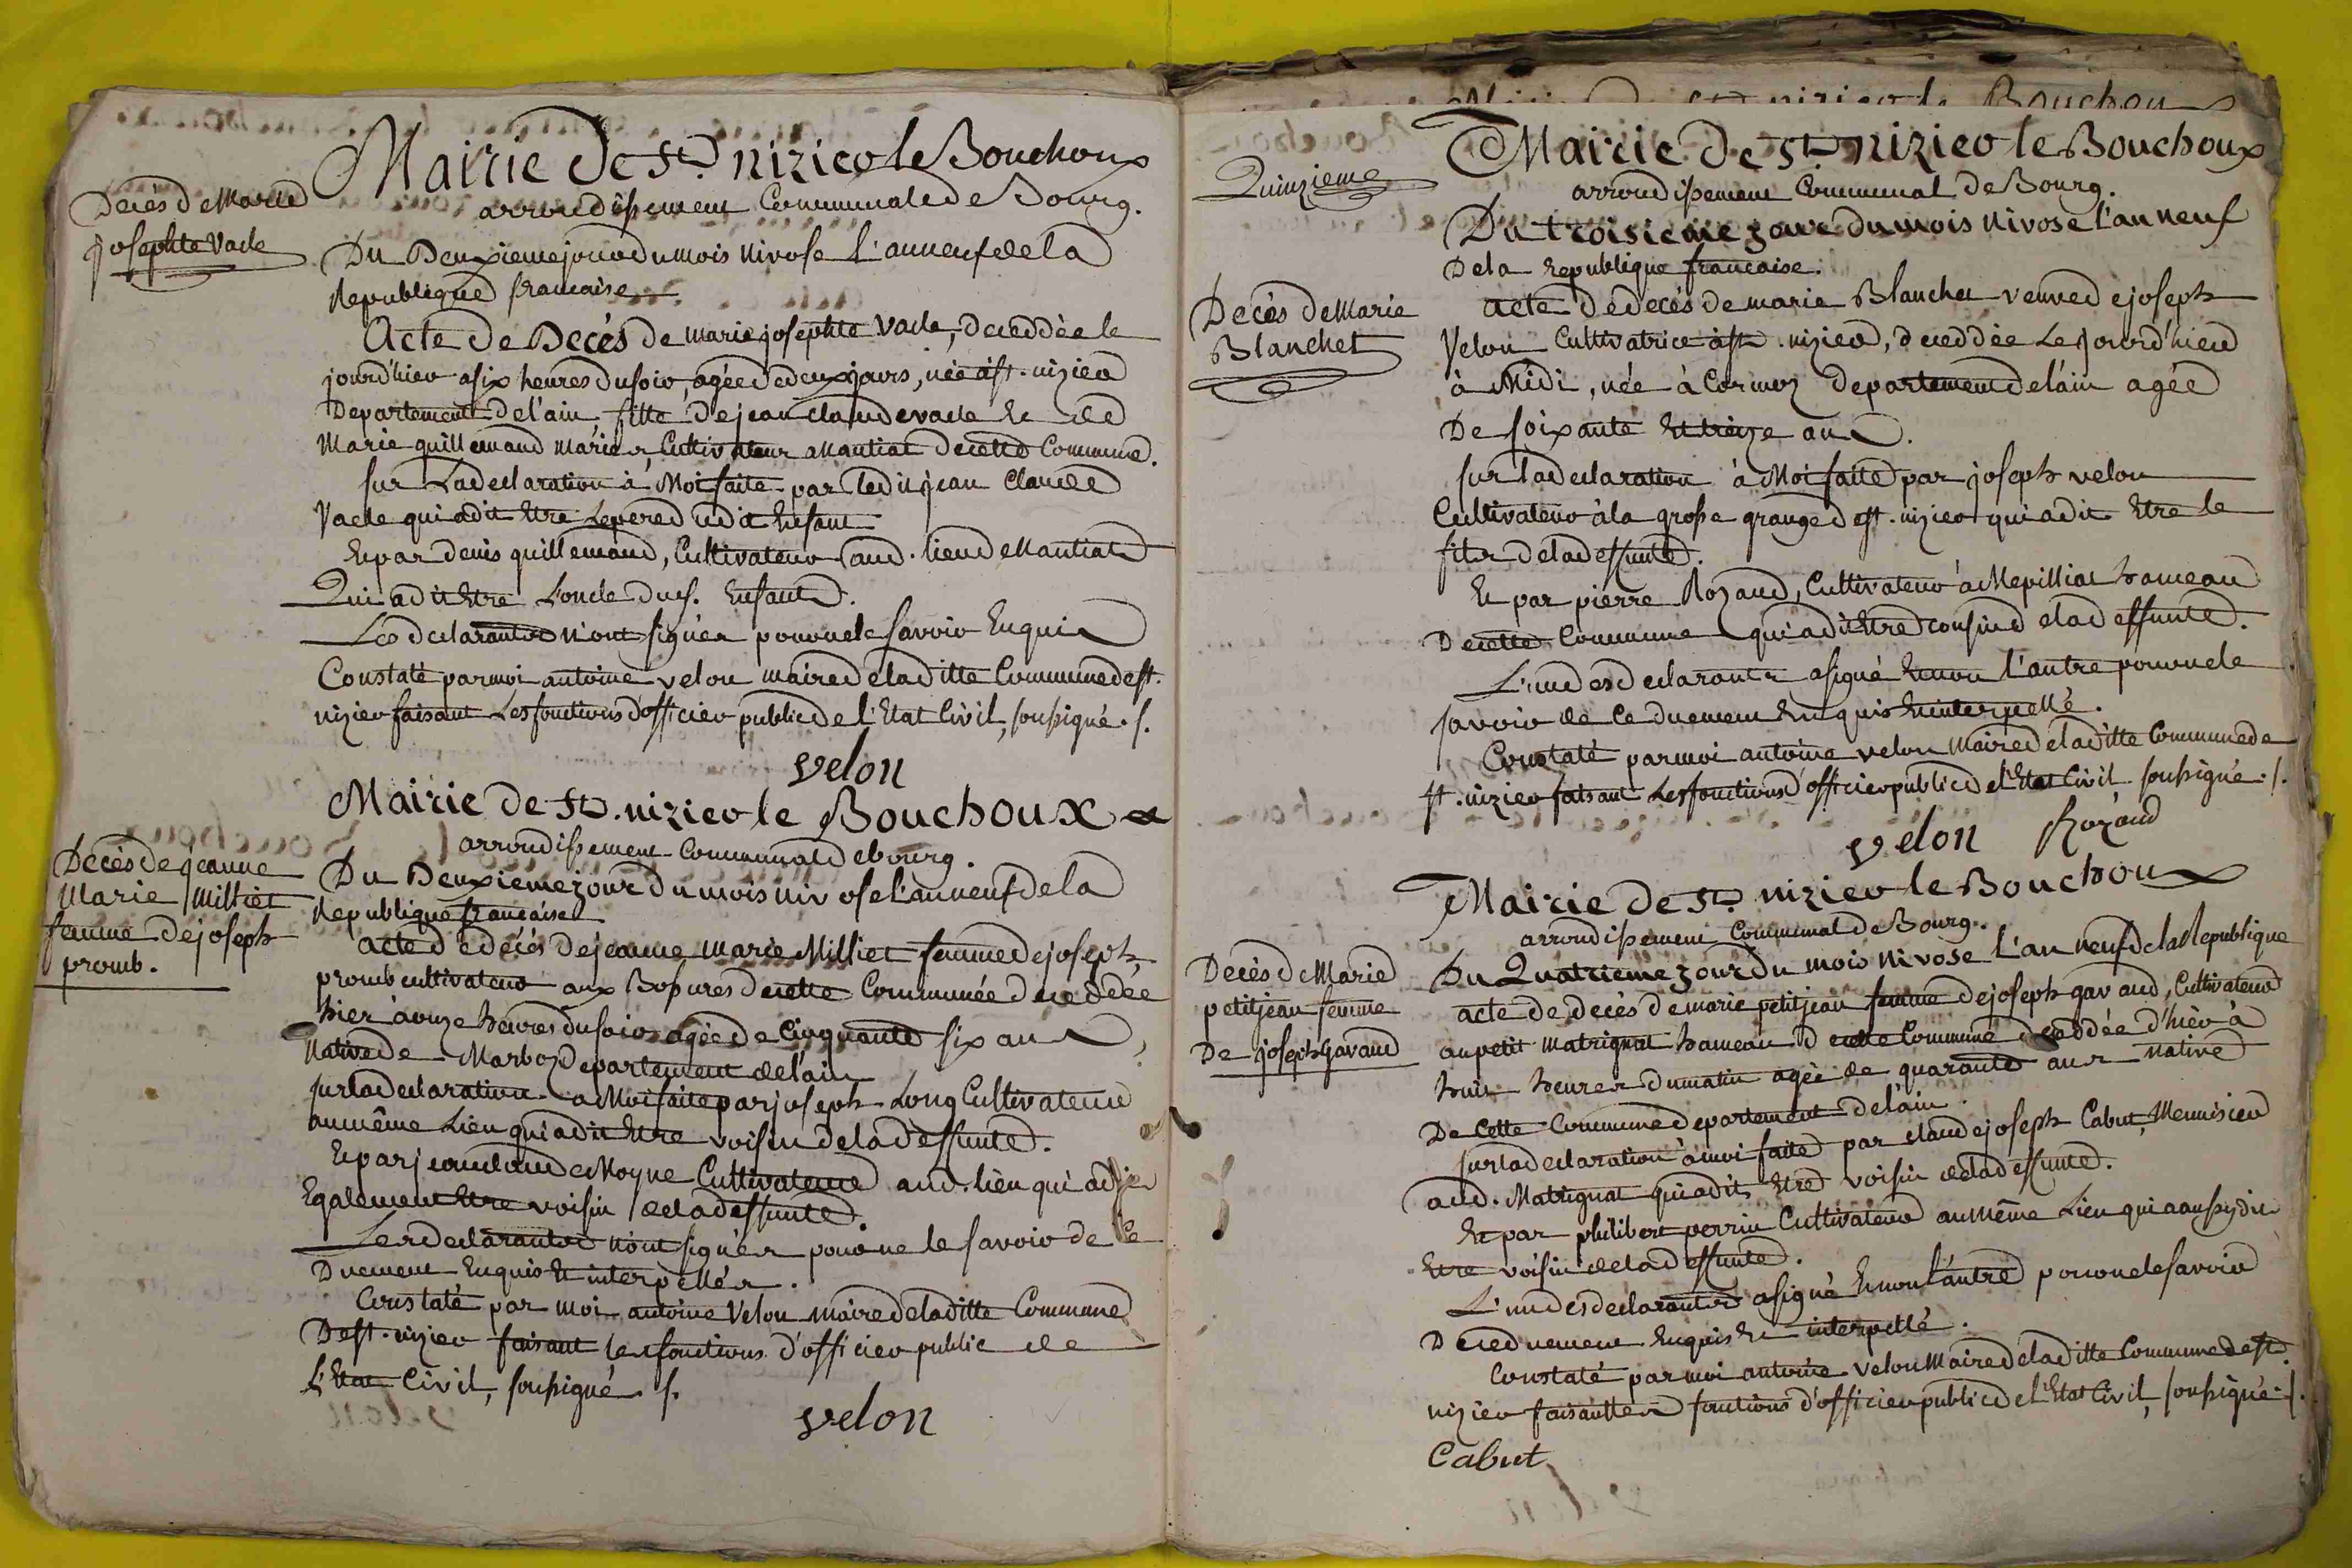 Mairie de St. nizier le Bouchoux
arrondissement Communal de Bourg.
Décès de Marie
josephte Vacle
Du Deuxieme jour du mois nivose l'an neuf de la
Republique francaise.
Acte de Decés de marie josephte Vacle, deceddée le
jourd'hier a six heures du soir, agée de deux jours, née à st. nizier
Departement de l'ain, fille de jean claude vacle et de
Marie guillemaud mariés, Cultivateur a Mantiat de cette Commune.
sur La declaration à Moi faite par ledit jean Claude
Vacle qui a dit Etre Le pere dudit Enfant
Et par denis guillemaud, Cultivateur aud. lieu de Mantiat
Qui a dit Etre L'oncle dud. Enfant.
Les declarants n'ont signés pour ne le savoir Enquis
Constaté par moi antoine velon maire de la ditte Commune de st.
nizier faisant Les fonctions d'officier public de l'Etat Civil, soussigné. /.
velon
Mairie de St. nizier le Bouchoux
arrondissement Communal de bourg.
Décès de jeanne
Marie Milliet
femme de joseph
promb.
Du Deuxieme jour du mois nivose l'an neuf de la
Republique francaise
acte de décés de jeanne marie Milliet femme de joseph
promb cultivateur aux Bossures de cette Communée deceddée
hier à onze heures du soir agée de Cinquante six ans,
Native de Marboz Departement de l'ain
sur la declaration a Moi faite par joseph Long Cultivateur
au même Lieu qui a dit Etre voisin de la deffunte.
Et par jean claude Moyne Cultivateur aud. lieu qui a dit
Egalement Etre voisin de la deffunte.
Les declarants n'ont signés pour ne le savoir de Ce
Duement Enquis Et interpellés.
Constaté par moi antoine Velon maire de la ditte Commune
De st. nizier faisant les fonctions d'officier public de
L'Etat Civil, soussigné. /.
velon
Quinzieme
Mairie de St. nizier le Bouchoux
arrondissement Communal de Bourg.
Du troisieme jour du mois Nivose l'an neuf
De la Republique francaise.
Décès de Marie
Blanchet
acte de decés de marie Blanchet veuve de joseph
Velon Cultivatrice à st. nizier, deceddée Le jourd'hier
à Midi, née à Cormoz departement de l'ain agée
De soixante Et treize ans.
sur la declaration à Moi faite par joseph velon
Cultivateur à la grosse grange de st. nizier qui a dit Etre le
fils de la deffunte.
Et par pierre Rozand, Cultivateur à Mepilliat hameau
De cette Commune qui a dit Etre cousin de la deffunte.
L'un des declarants a signé Et non l'autre pour ne le
savoir de Ce duement Enquis Et interpellé.
Constaté par moi antoine velon Maire de la ditte Commune de
st. nizier faisant Les fonctions d'officier public de l'Etat Civil soussigné. /.
velon Rozand
Mairie de St. nizier le Bouchoux
arrondissement Communal de Bourg.
Décès de Marie
petitjean femme
De joseph Gavand
Du Quatrieme jour du mois Nivose L'an neuf de la Republique
acte de decès de marie petitjean femme de joseph gavand, Cultivateur
au petit Matrignat hameau de cette Commune deceddée d'hier à
huit heures du matin agée de quarante ans native
De Cette Commune departement de l'ain.
sur la declaration à moi faite par claude joseph Cabut, Menuisier
aud. Matrignat qui a dit Etre voisin de la deffunte.
Et par philibert perrin Cultivateur au Même Lieu qui a aussy dit
Etre voisin de la deffunte.
L'un des declarants a signé Et non l'autre pour ne le savoir
De ce duement Enquis Et interpellé.
Constaté par moi antoine velon Maire de la ditte Commune de st.
nizier faisant les fonctions d'officier public de l'Etat Civil, soussigné. /.
Cabut